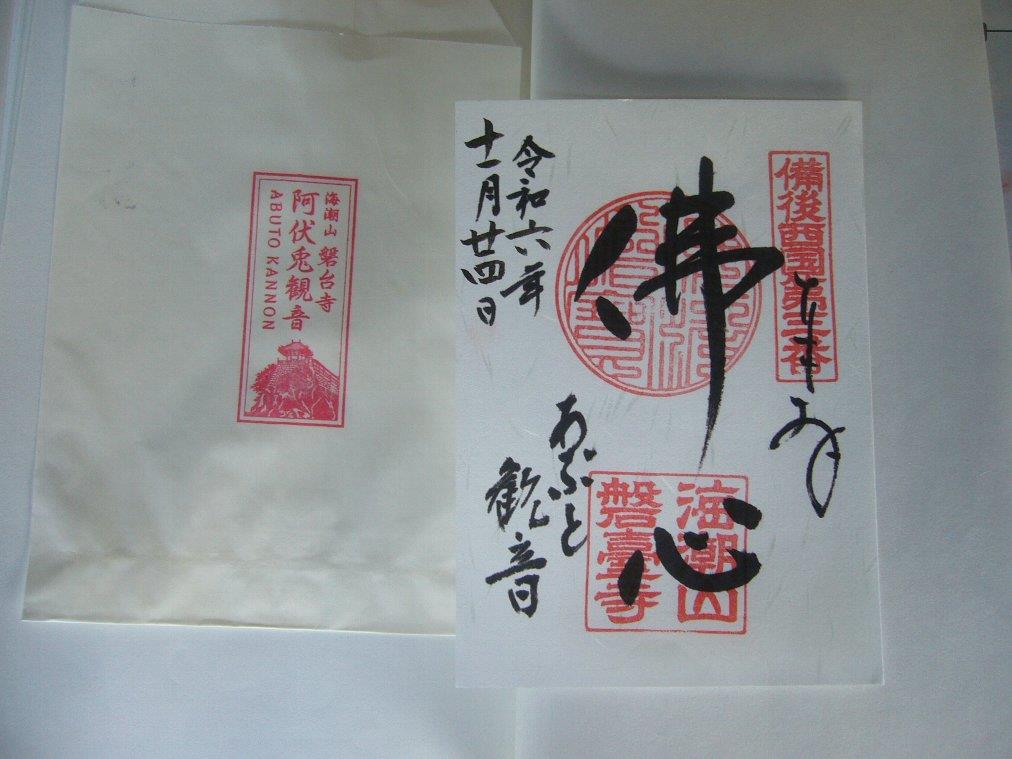 海潮山 磐台寺
阿伏兎観音
ABUTO KANNON
備後西国第三番
奉拝
佛心
海潮山
磐臺寺
あぶと
観音
令和六年
十一月廿四日